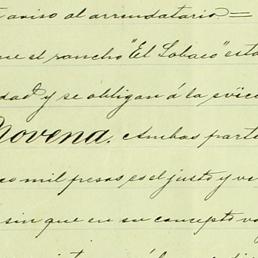 aviso al arrendatario =
que el rancho "El Lobaco" esta
dad y se obligan á la evic
Novena. Ambas parte
mil pesos es el justo y v
sin que en su concepto va